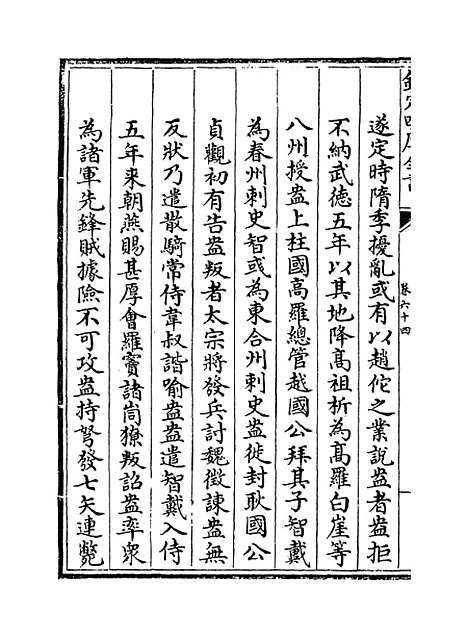 欽定四庫全書
卷六十四
遂定時隋季擾亂或有以趙佗之業說盎者盎拒
不納武徳五年以其地降髙祖析為髙羅白崖等
八州授盎上柱國高羅總管越國公拜其子智戴
為春州刺史智彧為東合州刺史盎徙封耿國公
貞觀初有告盎叛者太宗將發兵討魏徵諫盎無
反狀乃遣散騎常侍韋叔諧喻盎盎遣智戴入侍
五年来朝燕賜甚厚會羅竇諸峒獠叛詔盎率衆
為諸軍先鋒賊據險不可攻盎持弩發七矢連斃